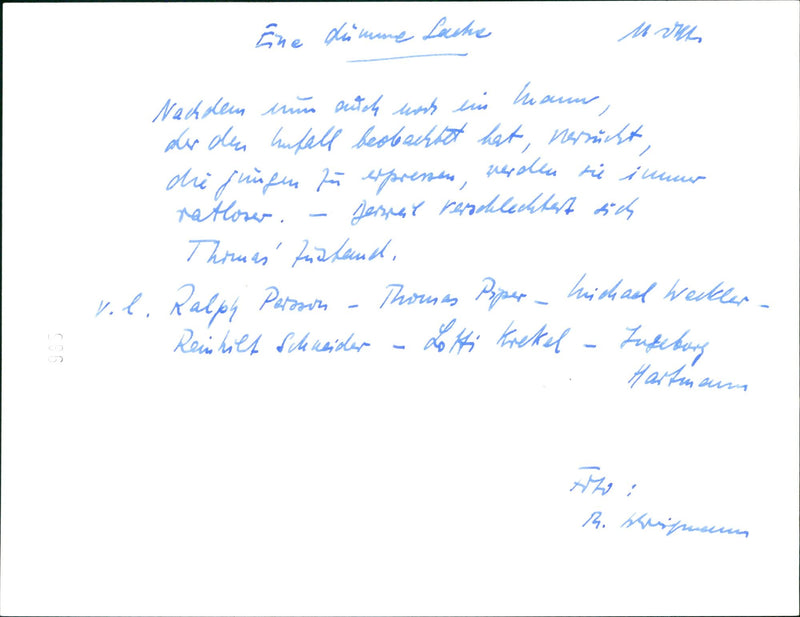 Eine dumme Sache
Nachdem nun auch noch ein Mann,
der den Unfall beobachtet hat, versucht,
die Jungen zu erpressen, werden sie immer
ratloser. – Derweil verschlechtert sich
Thomas' Zustand.
v. l. Ralph Persson – Thomas Piper – Michael Weckler –
Reinhilt Schneider – Lotti Krekel – Ingeborg
Hartmann
Foto: